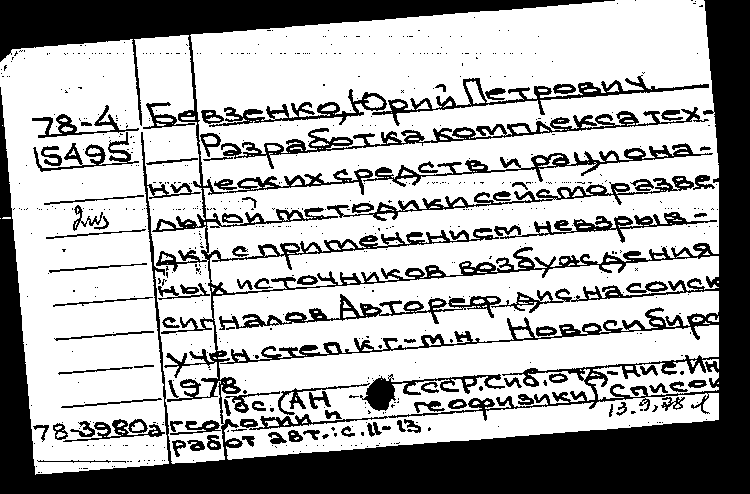 78-4 Бевзенко, Юрий Петрович.
15495 Разработка комплекса тех-
нических средств и рациона-
льной методики сейсморазве-
дки с применением невзрыв-
ных источников возбуждения
сигналов Автореф. дис. на соиск
учен. степ. к.г.-м.н. Новосибирс
1978.
18с. (АН СССР. Сиб. отд-ние. Ин
78-3980а геологии и геофизики). Список
работ авт.: с. 11-13. 13.9.78